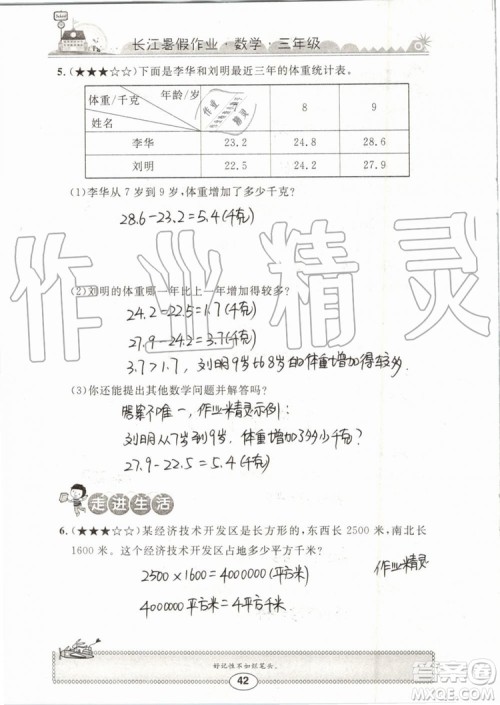 长江暑假作业·数学·三年级
5.(★★★☆☆)下面是李华和刘明最近三年的体重统计表。
体重/千克 年龄/岁 姓名 8 9
李华 23.2 24.8 28.6
刘明 22.5 24.2 27.9
作业精灵
(1)李华从7岁到9岁,体重增加了多少千克?
28.6-23.2=5.4(千克)
(2)刘明的体重哪一年比上一年增加得较多?
24.2-22.5=1.7(千克)
27.9-24.2=3.7(千克)
3.7>1.7,刘明9岁比8岁的体重增加得较多
(3)你还能提出其他数学问题并解答吗?
答案不唯一,作业精灵示例:
刘明从7岁到9岁,体重增加了多少千克?
27.9-22.5=5.4(千克)
走进生活
6.(★★★☆☆)某经济技术开发区是长方形的,东西长2500米,南北长
1600米。这个经济技术开发区占地多少平方千米?
2500×1600=4000000(平方米)
作业精灵
4000000平方米=4平方千米
好记性不如烂笔头。
42
作业精灵
答案圈